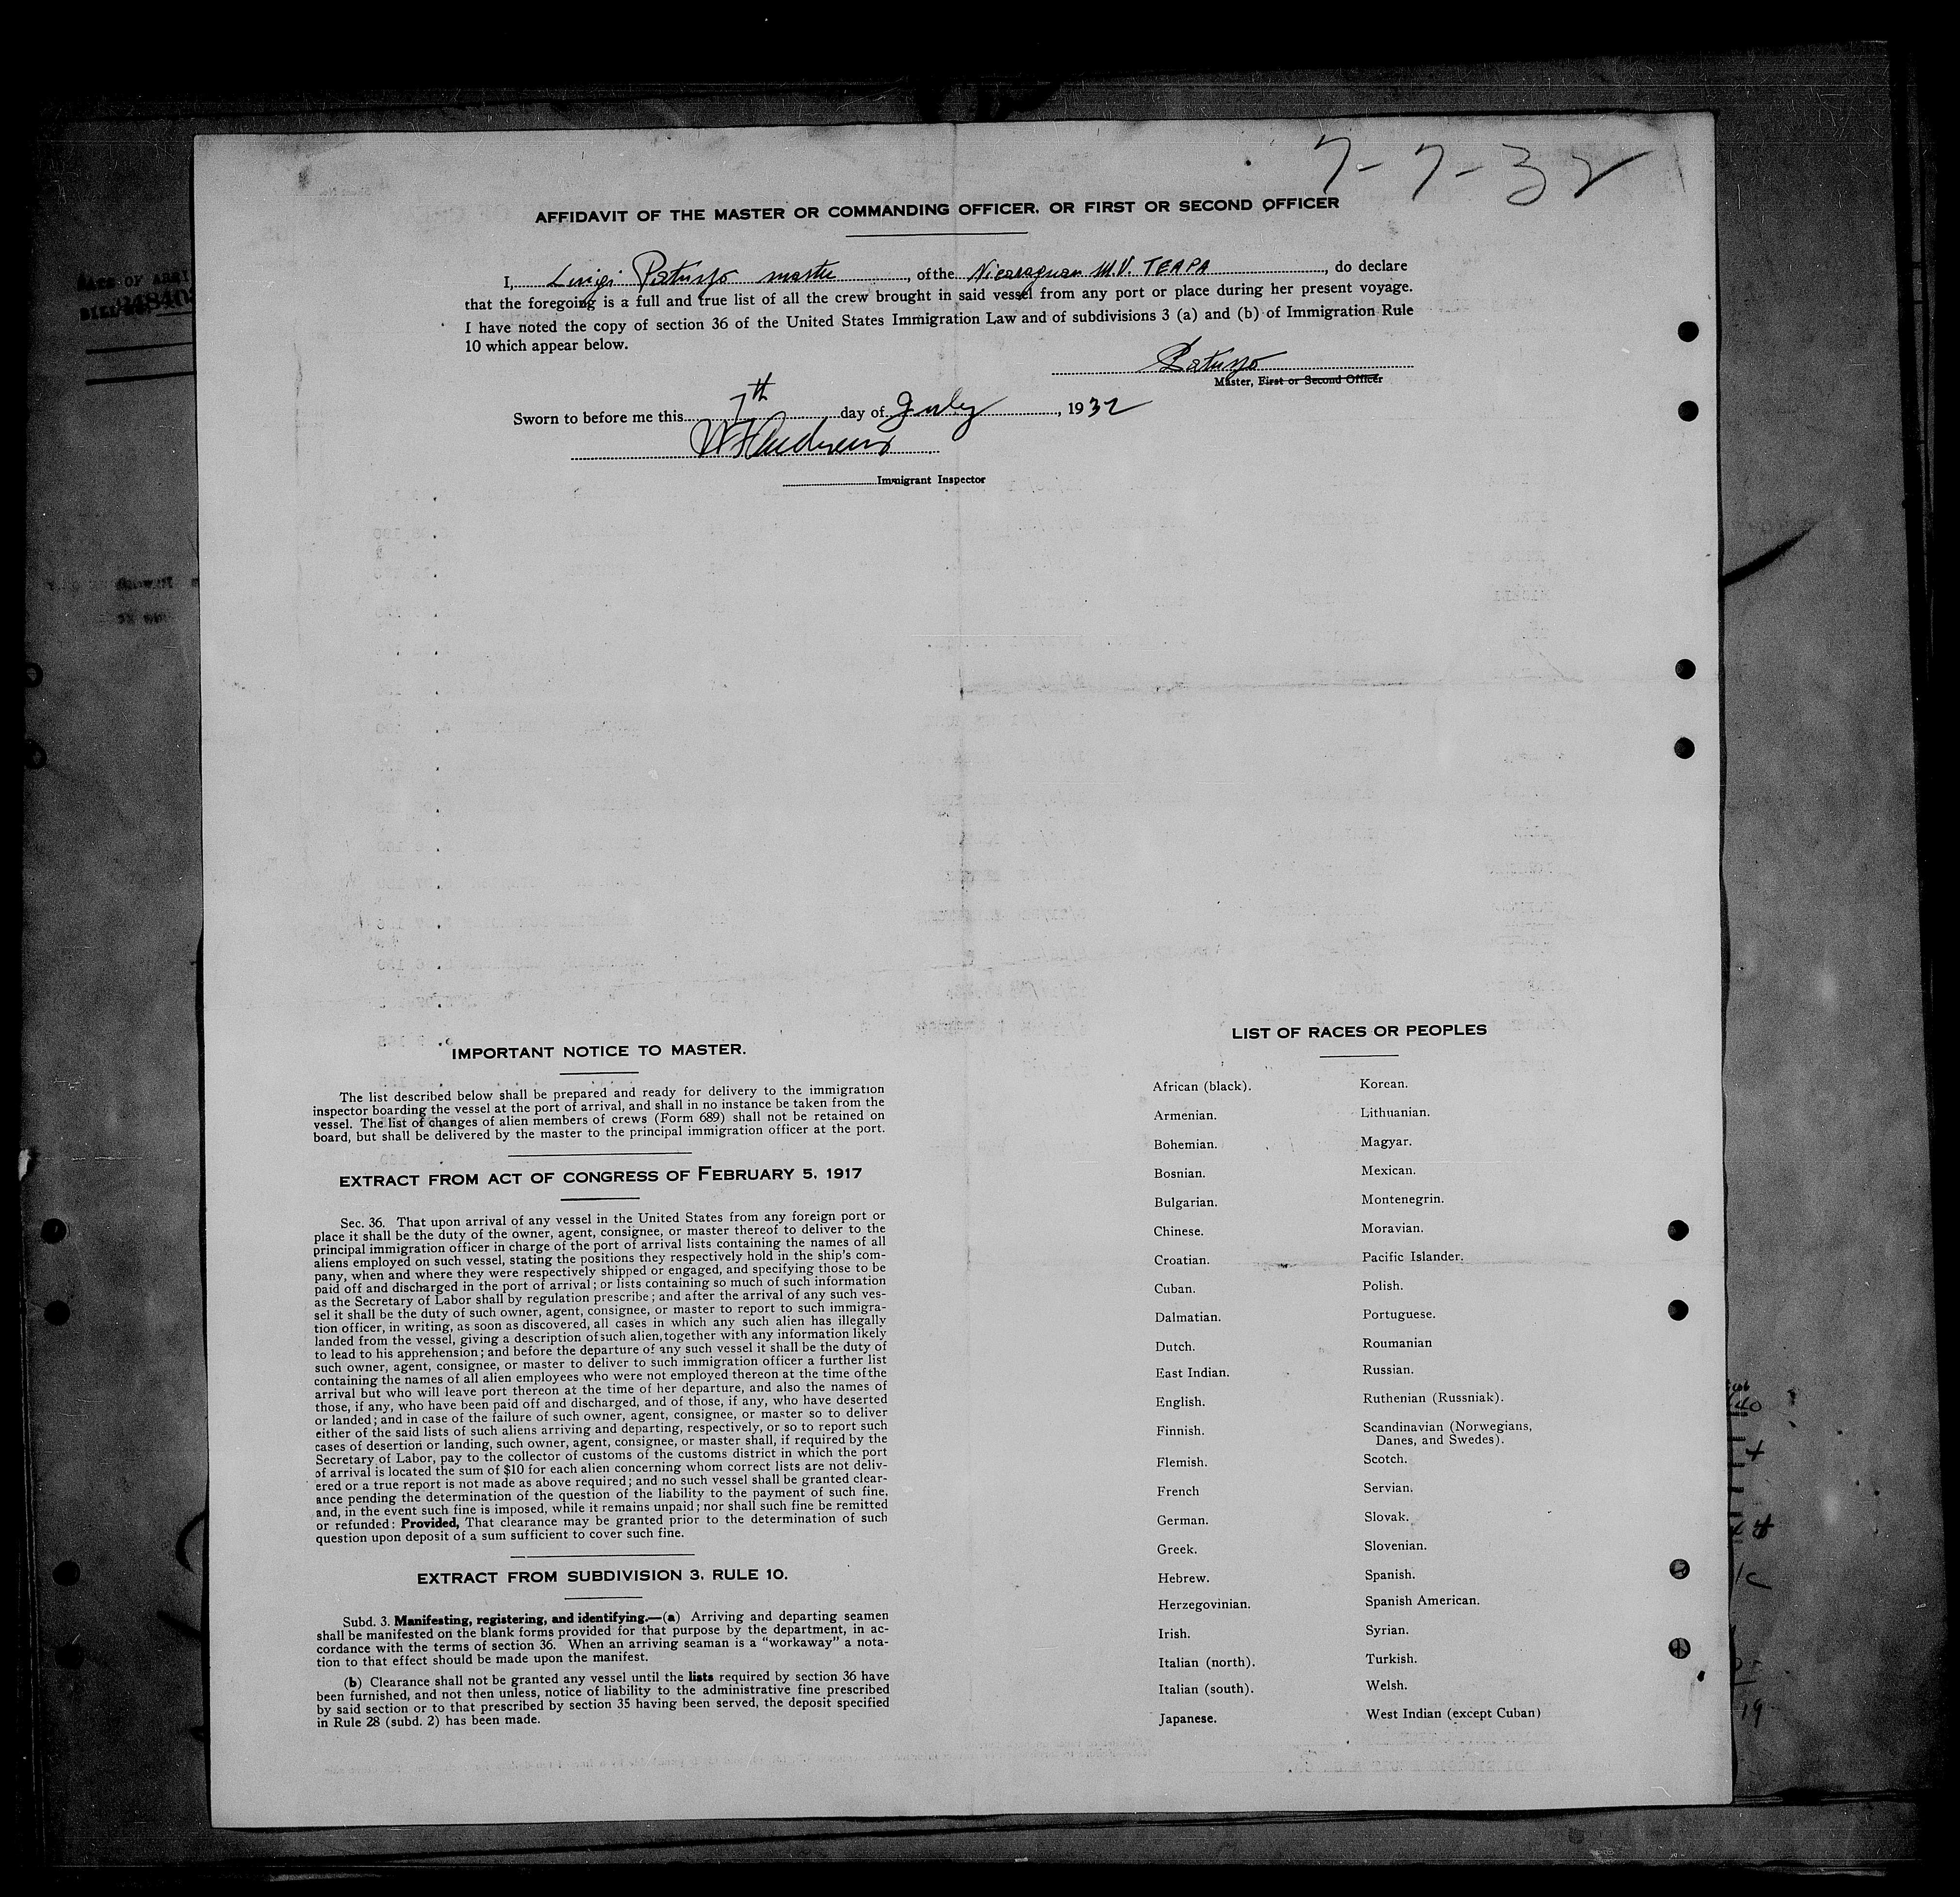 7-7-32
AFFIDAVIT OF THE MASTER OR COMMANDING OFFICER, OR FIRST OR SECOND OFFICER
I, Luigi master, of the Nicaraguan M.V. TEAPA, do declare
that the foregoing is a full and true list of all the crew brought in said vessel from any port or place during her present voyage.
I have noted the copy of section 36 of the United States Immigration Law and of subdivisions 3 (a) and (b) of Immigration Rule
10 which appear below.
Master, First or Second Officer
Sworn to before me this 7th day of July, 1932
Andrews
Immigrant Inspector
IMPORTANT NOTICE TO MASTER.
The list described below shall be prepared and ready for delivery to the immigration
inspector boarding the vessel at the port of arrival, and shall in no instance be taken from the
vessel. The list of changes of alien members of crews (Form 689) shall not be retained on
board, but shall be delivered by the master to the principal immigration officer at the port.
EXTRACT FROM ACT OF CONGRESS OF FEBRUARY 5, 1917
Sec. 36. That upon arrival of any vessel in the United States from any foreign port or
place it shall be the duty of the owner, agent, consignee, or master thereof to deliver to the
principal immigration officer in charge of the port of arrival lists containing the names of all
aliens employed on such vessel, stating the positions they respectively hold in the ship's com-
pany, when and where they were respectively shipped or engaged, and specifying those to be
paid off and discharged in the port of arrival; or lists containing so much of such information
as the Secretary of Labor shall by regulation prescribe; and after the arrival of any such ves-
sel it shall be the duty of such owner, agent, consignee, or master to report to such immigra-
tion officer, in writing, as soon as discovered, all cases in which any such alien has illegally
landed from the vessel, giving a description of such alien, together with any information likely
to lead to his apprehension; and before the departure of any such vessel it shall be the duty of
such owner, agent, consignee, or master to deliver to such immigration officer a further list
containing the names of all alien employees who were not employed thereon at the time of the
arrival but who will leave port thereon at the time of her departure, and also the names of
those, if any, who have been paid off and discharged, and of those, if any, who have deserted
or landed; and in case of the failure of such owner, agent, consignee, or master so to deliver
either of the said lists of such aliens arriving and departing, respectively, or so to report such
cases of desertion or landing, such owner, agent, consignee, or master shall, if required by the
Secretary of Labor, pay to the collector of customs of the customs district in which the port
of arrival is located the sum of $10 for each alien concerning whom correct lists are not deliv-
ered or a true report is not made as above required; and no such vessel shall be granted clear-
ance pending the determination of the question of the liability to the payment of such fine,
and, in the event such fine is imposed, while it remains unpaid; nor shall such fine be remitted
or refunded: Provided, That clearance may be granted prior to the determination of such
question upon deposit of a sum sufficient to cover such fine.
EXTRACT FROM SUBDIVISION 3, RULE 10.
Subd. 3. Manifesting, registering, and identifying.—(a) Arriving and departing seamen
shall be manifested on the blank forms provided for that purpose by the department, in ac-
cordance with the terms of section 36. When an arriving seaman is a "workaway" a nota-
tion to that effect should be made upon the manifest.
(b) Clearance shall not be granted any vessel until the lists required by section 36 have
been furnished, and not then unless, notice of liability to the administrative fine prescribed
by said section or to that prescribed by section 35 having been served, the deposit specified
in Rule 28 (subd. 2) has been made.
LIST OF RACES OR PEOPLES
African (black).
Armenian.
Bohemian.
Bosnian.
Bulgarian.
Chinese.
Croatian.
Cuban.
Dalmatian.
Dutch.
East Indian.
English.
Finnish.
Flemish.
French
German.
Greek.
Hebrew.
Herzegovinian.
Irish.
Italian (north).
Italian (south).
Japanese.
Korean.
Lithuanian.
Magyar.
Mexican.
Montenegrin.
Moravian.
Pacific Islander.
Polish.
Portuguese.
Roumanian
Russian.
Ruthenian (Russniak).
Scandinavian (Norwegians,
Danes, and Swedes).
Scotch.
Servian.
Slovak.
Slovenian.
Spanish.
Spanish American.
Syrian.
Turkish.
Welsh.
West Indian (except Cuban)